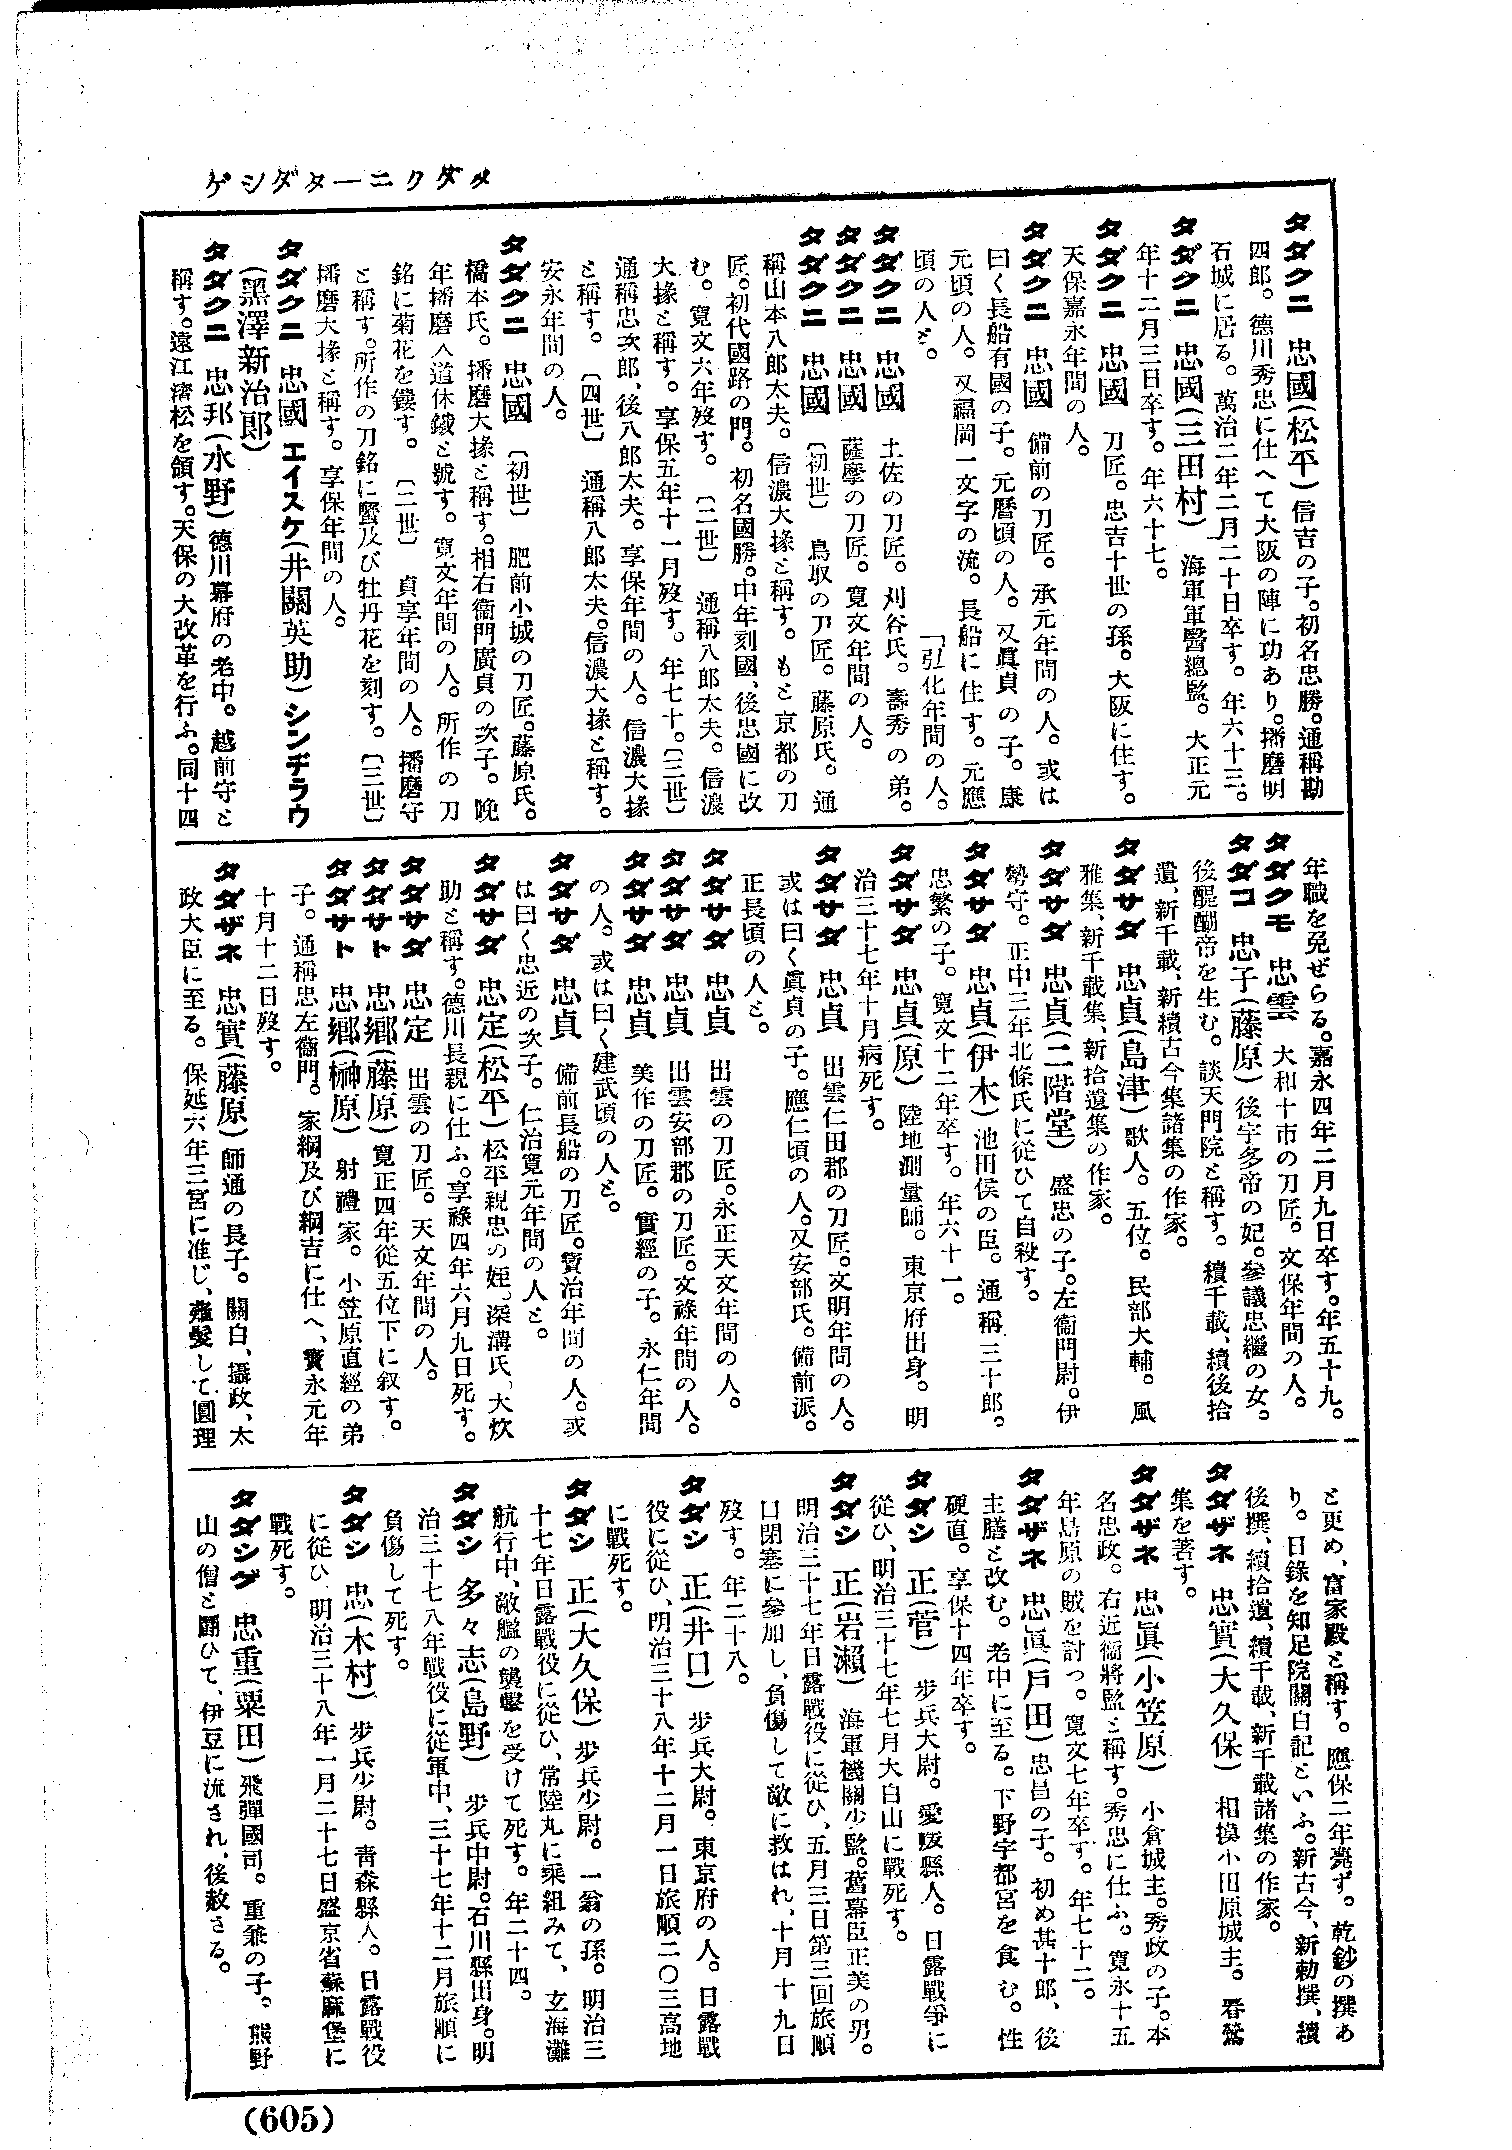 タダクニ―タダシゲ
タダクニ 忠國(松平) 信吉の子。初名忠勝。通稱勘
四郎。德川秀忠に仕へて大阪の陣に功あり。播磨明
石城に居る。萬治二年二月二十日卒す。年六十三。
タダクニ 忠國(三田村) 海軍軍醫總監。大正元
年十二月三日卒す。年六十七。
タダクニ 忠國 刀匠。忠吉十世の孫。大阪に住す。
天保嘉永年間の人。
タダクニ 忠國 備前の刀匠。承元年間の人。或は
曰く長船有國の子。元曆頃の人。又眞貞の子。康
元頃の人。又福岡一文字の流。長船に住す。元應
頃の人と。 「弘化年間の人。
タダクニ 忠國 土佐の刀匠。刈谷氏。壽秀の弟。
タダクニ 忠國 薩摩の刀匠。寬文年間の人。
タダクニ 忠國 〔初世〕 鳥取の刀匠。藤原氏。通
稱山本八郎太夫。信濃大掾と稱す。もと京都の刀
匠。初代國路の門。初名國勝。中年刻國、後忠國に改
む。寬文六年歿す。〔二世〕 通稱八郎太夫。信濃
大掾と稱す。享保五年十一月歿す。年七十。〔三世〕
通稱忠次郎、後八郎太夫。享保年間の人。信濃大掾
と稱す。〔四世〕 通稱八郎太夫。信濃大掾と稱す。
安永年間の人。
タダクニ 忠國 〔初世〕 肥前小城の刀匠。藤原氏。
橋本氏。播磨大掾と稱す。相右衞門廣貞の次子。晩
年播磨入道休鐵と號す。寬文年間の人。所作の刀
銘に菊花を鏤す。〔二世〕 貞享年間の人。播磨守
と稱す。所作の刀銘に蟹及び牡丹花を刻す。〔三世〕
播磨大掾と稱す。享保年間の人。
タダクニ 忠國 エイスケ(井關英助) シンヂラウ
(黑澤新治郎)
タダクニ 忠邦(水野) 德川幕府の老中。越前守と
稱す。遠江濱松を領す。天保の大改革を行ふ。同十四
年職を免ぜらる。嘉永四年二月九日卒す。年五十九。
タダクモ 忠雲 大和十市の刀匠。文保年間の人。
タダコ 忠子(藤原) 後宇多帝の妃。參議忠繼の女。
後醍醐帝を生む。談天門院と稱す。續千載、續後拾
遺、新千載、新續古今集諸集の作家。
タダサダ 忠貞(島津) 歌人。五位。民部大輔。風
雅集、新千載集、新拾遺集の作家。
タダサダ 忠貞(二階堂) 盛忠の子。左衞門尉。伊
勢守。正中三年北條氏に從ひて自殺す。
タダサダ 忠貞(伊木) 池田侯の臣。通稱三十郎。
忠繁の子。寬文十二年卒す。年六十一。
タダサダ 忠貞(原) 陸地測量師。東京府出身。明
治三十七年十月病死す。
タダサダ 忠貞 出雲仁田郡の刀匠。文明年間の人。
或は曰く眞貞の子。應仁頃の人。又安部氏。備前派。
正長頃の人と。
タダサダ 忠貞 出雲の刀匠。永正天文年間の人。
タダサダ 忠貞 出雲安部郡の刀匠。文祿年間の人。
タダサダ 忠貞 美作の刀匠。實經の子。永仁年間
の人。或は曰く建武頃の人と。
タダサダ 忠貞 備前長船の刀匠。寶治年間の人。或
は曰く忠近の次子。仁治寬元年間の人と。
タダサダ 忠定(松平) 松平親忠の姪。深溝氏、大炊
助と稱す。德川長親に仕ふ。享祿四年六月九日死す。
タダサダ 忠定 出雲の刀匠。天文年間の人。
タダサト 忠鄕(藤原) 寬正四年從五位下に叙す。
タダサト 忠鄕(榊原) 射禮家。小笠原直經の弟
子。通稱忠左衞門。家綱及び綱吉に仕へ、寶永元年
十月十二日歿す。
タダザネ 忠實(藤原) 師通の長子。關白、攝政、太
政大臣に至る。保延六年三宮に准じ、薙髮して圓理
と更め、富家殿と稱す。應保二年薨ず。乾鈔の撰あ
り。日錄を知足院關白記といふ。新古今、新勅撰、續
後撰、續拾遺、續千載、新千載諸集の作家。
タダザネ 忠實(大久保) 相摸小田原城主。春鶯
集を著す。
タダザネ 忠眞(小笠原) 小倉城主。秀政の子。本
名忠政。右近衞將監と稱す。秀忠に仕ふ。寬永十五
年島原の賊を討つ。寬文七年卒す。年七十二。
タダザネ 忠眞(戶田) 忠昌の子。初め甚十郎、後
主膳と改む。老中に至る。下野宇都宮を食む。性
硬直。享保十四年卒す。
タダシ 正(菅) 步兵大尉。愛媛縣人。日露戰爭に
從ひ、明治三十七年七月大白山に戰死す。
タダシ 正(岩瀨) 海軍機關少監。舊幕臣正美の男。
明治三十七年日露戰役に從ひ、五月三日第三回旅順
口閉塞に參加し、負傷して敵に救はれ、十月十九日
歿す。年二十八。
タダシ 正(井口) 步兵大尉。東京府の人。日露戰
役に從ひ、明治三十八年十二月一日旅順二〇三高地
に戰死す。
タダシ 正(大久保) 步兵少尉。一翁の孫。明治三
十七年日露戰役に從ひ、常陸丸に乘組みて、玄海灘
航行中、敵艦の襲擊を受けて死す。年二十四。
タダシ 多々志(島野) 步兵中尉。石川縣出身。明
治三十七八年戰役に從軍中、三十七年十二月旅順に
負傷して死す。
タダシ 忠(木村) 步兵少尉。靑森縣人。日露戰役
に從ひ、明治三十八年一月二十七日盛京省蘇麻堡に
戰死す。
タダシゲ 忠重(粟田) 飛彈國司。重兼の子。熊野
山の僧と鬪ひて、伊豆に流され、後赦さる。
(605)